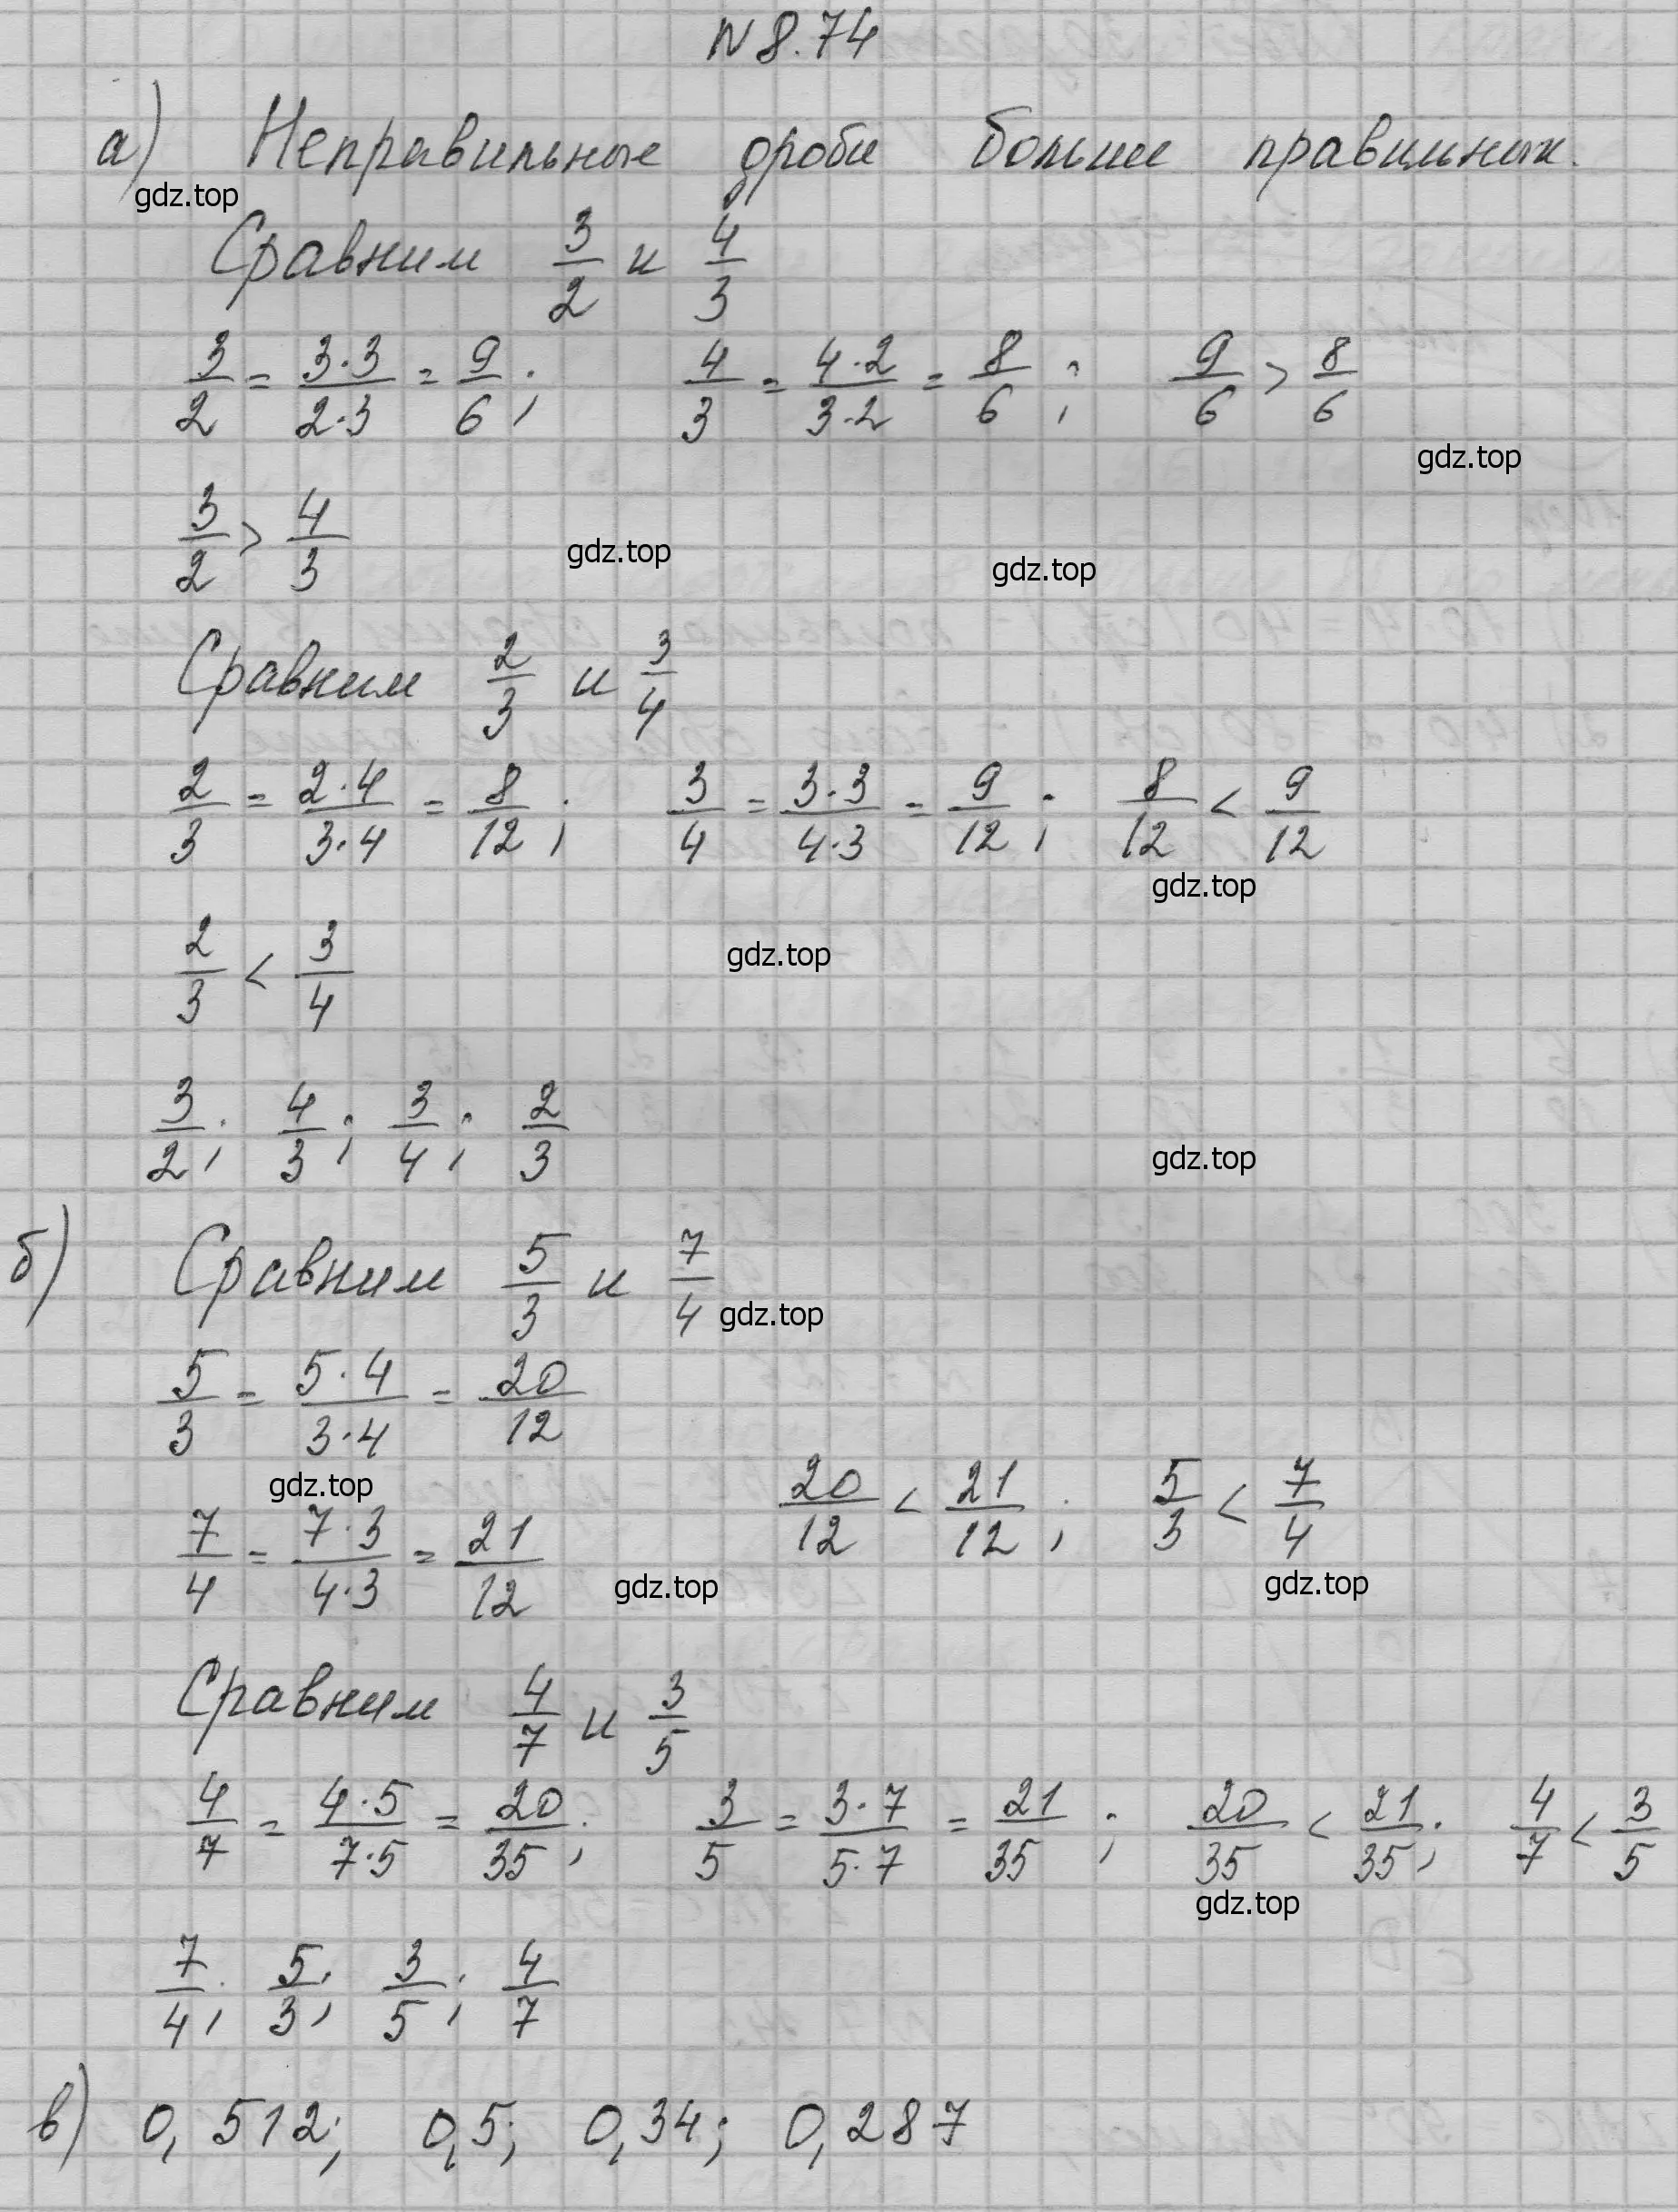 N 8.74
а) Неправильные дроби больше правильных.
gdz.top
Сравним 3/2 и 4/3
3/2 = 3·3/2·3 = 9/6; 4/3 = 4·2/3·2 = 8/6; 9/6 > 8/6
gdz.top
3/2 > 4/3
gdz.top gdz.top
Сравним 2/3 и 3/4
2/3 = 2·4/3·4 = 8/12; 3/4 = 3·3/4·3 = 9/12; 8/12 < 9/12
gdz.top
2/3 < 3/4
gdz.top
3/2; 4/3; 3/4; 2/3
gdz.top
б) Сравним 5/3 и 7/4
gdz.top
5/3 = 5·4/3·4 = 20/12
gdz.top
7/4 = 7·3/4·3 = 21/12 20/12 < 21/12; 5/3 < 7/4
gdz.top gdz.top
Сравним 4/7 и 3/5
4/7 = 4·5/7·5 = 20/35; 3/5 = 3·7/5·7 = 21/35; 20/35 < 21/35; 4/7 < 3/5
gdz.top
7/4; 5/3; 3/5; 4/7
в) 0,512; 0,5; 0,34; 0,287